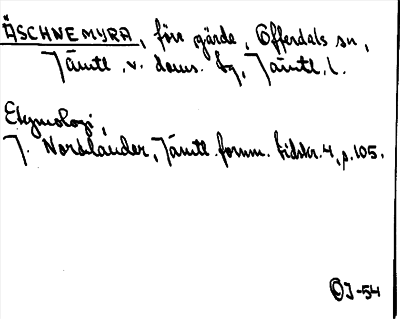 ÄSCHNEMYRA, förr gärde, Offerdals sn,
Jämtl. v. doms. tg, Jämtl. l.
Etymologi,
J. Nordlander, Jämtl. fornm. tidskr. 4, p. 105.
OJ-54